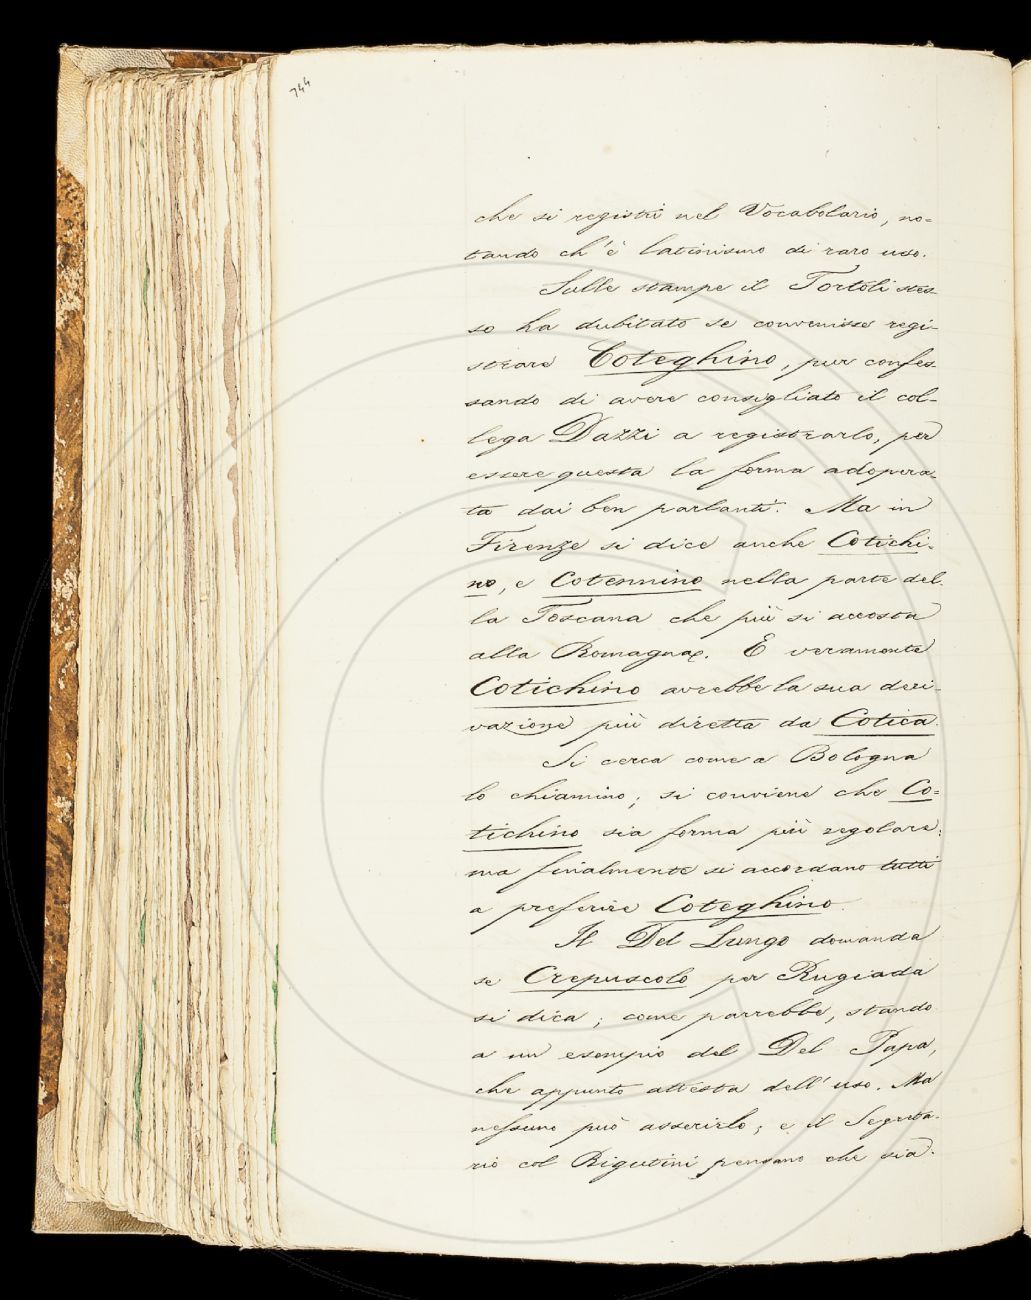 744
che si registri nel Vocabolario, no=
tando ch'è latinismo di raro uso.
Sulle stampe il Tortoli stes-
so ha dubitato se convenisse regi-
strare Coteghino, pur confes-
sando di avere consigliato il col-
lega Dazzi a registrarlo, per
essere questa la forma adopera-
ta dai ben parlanti. Ma in
Firenze si dice anche Cotichi-
no, e Cotennino nella parte del-
la Toscana che più si accosta
alla Romagna. E veramente
Cotichino avrebbe la sua deri-
vazione più diretta da Cotica.
Si cerca come a Bologna
lo chiamino; si conviene che Co=
tichino sia forma più regolare:
ma finalmente si accordano tutti
a preferire Coteghino.
Il Del Lungo domanda
se Crepuscolo per Rugiada
si dica; come parrebbe, stando
a un esempio del Del Papa,
che appunto attesta dell'uso. Ma
nessuno può asserirlo; e il Segreta-
rio col Rigutini pensano che sia